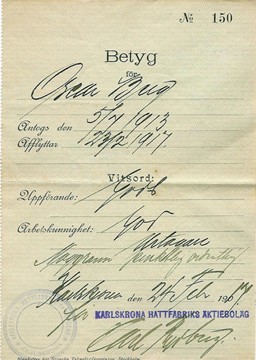 № 150
Betyg
för
Oscar Berg
Antogs den 5/7 1913
Afflyttar 23/2 1917
Vitsord:
Uppförande: Godt
Arbetskunnighet: God
Karlskrona den 24 Febr 1917
för KARLSKRONA HATTFABRIKS AKTIEBOLAG